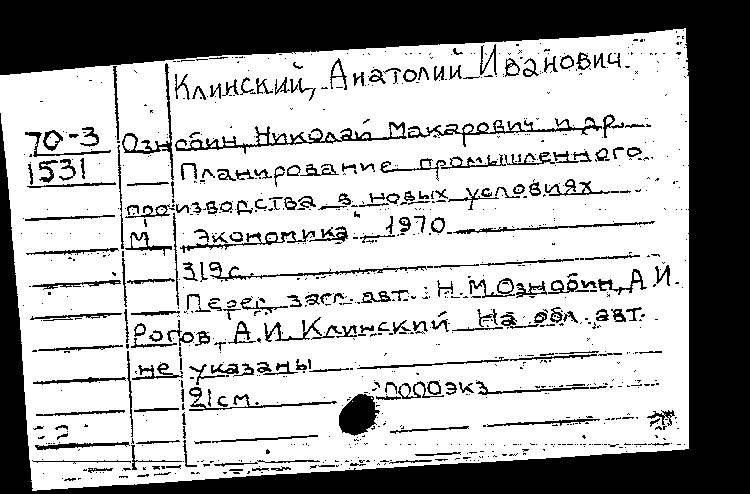 Клинский, Анатолий Иванович.
70-3 Ознобин, Николай Макарович и др.
1531 Планирование промышленного
производства в новых условиях
М "Экономика", 1970
319 с.
Перед загл. авт.: Н.М.Ознобин, А.И.
Рогов, А.И. Клинский На обл. авт.
не указаны
21 см. 0000 экз